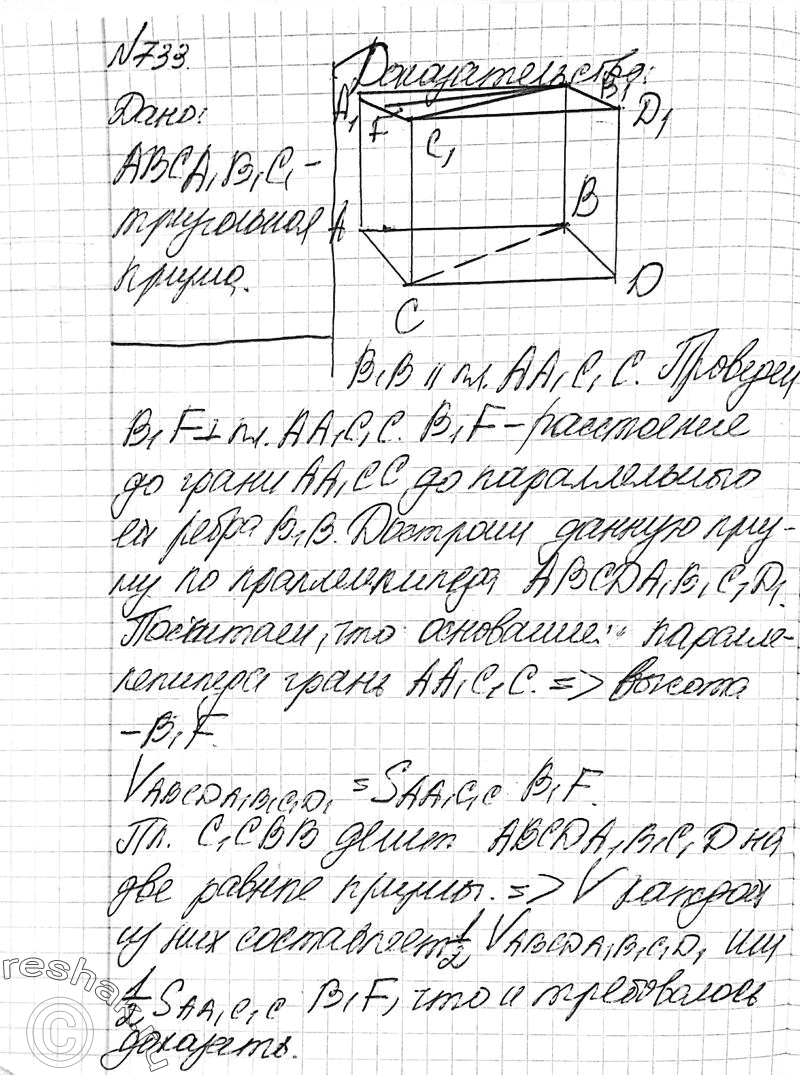 №733.
Доказательство:
Дано:
ABCA₁B₁C₁ –
треугольная
призма.
A₁
F
C₁
B₁
D₁
A
B
C
D
B₁B ∥ пл. AA₁C₁C. Проведем
B₁F ⊥ пл. AA₁C₁C. B₁F – расстояние
до грани AA₁CC до параллельного
ей ребра B₁B. Достроим данную приз-
му до параллелепипеда ABCDA₁B₁C₁D₁.
Посчитаем, что основание паралле-
лепипеда грань AA₁C₁C. => высота
– B₁F.
V ABCDA₁B₁C₁D₁ = S AA₁C₁C B₁F.
Пл. C₁CBB делит ABCDA₁B₁C₁D на
две равные призмы. => V каждой
из них составляет 1/2 V ABCDA₁B₁C₁D₁ или
1/2 S AA₁C₁C B₁F, что и требовалось
доказать.
reshak.ru
©